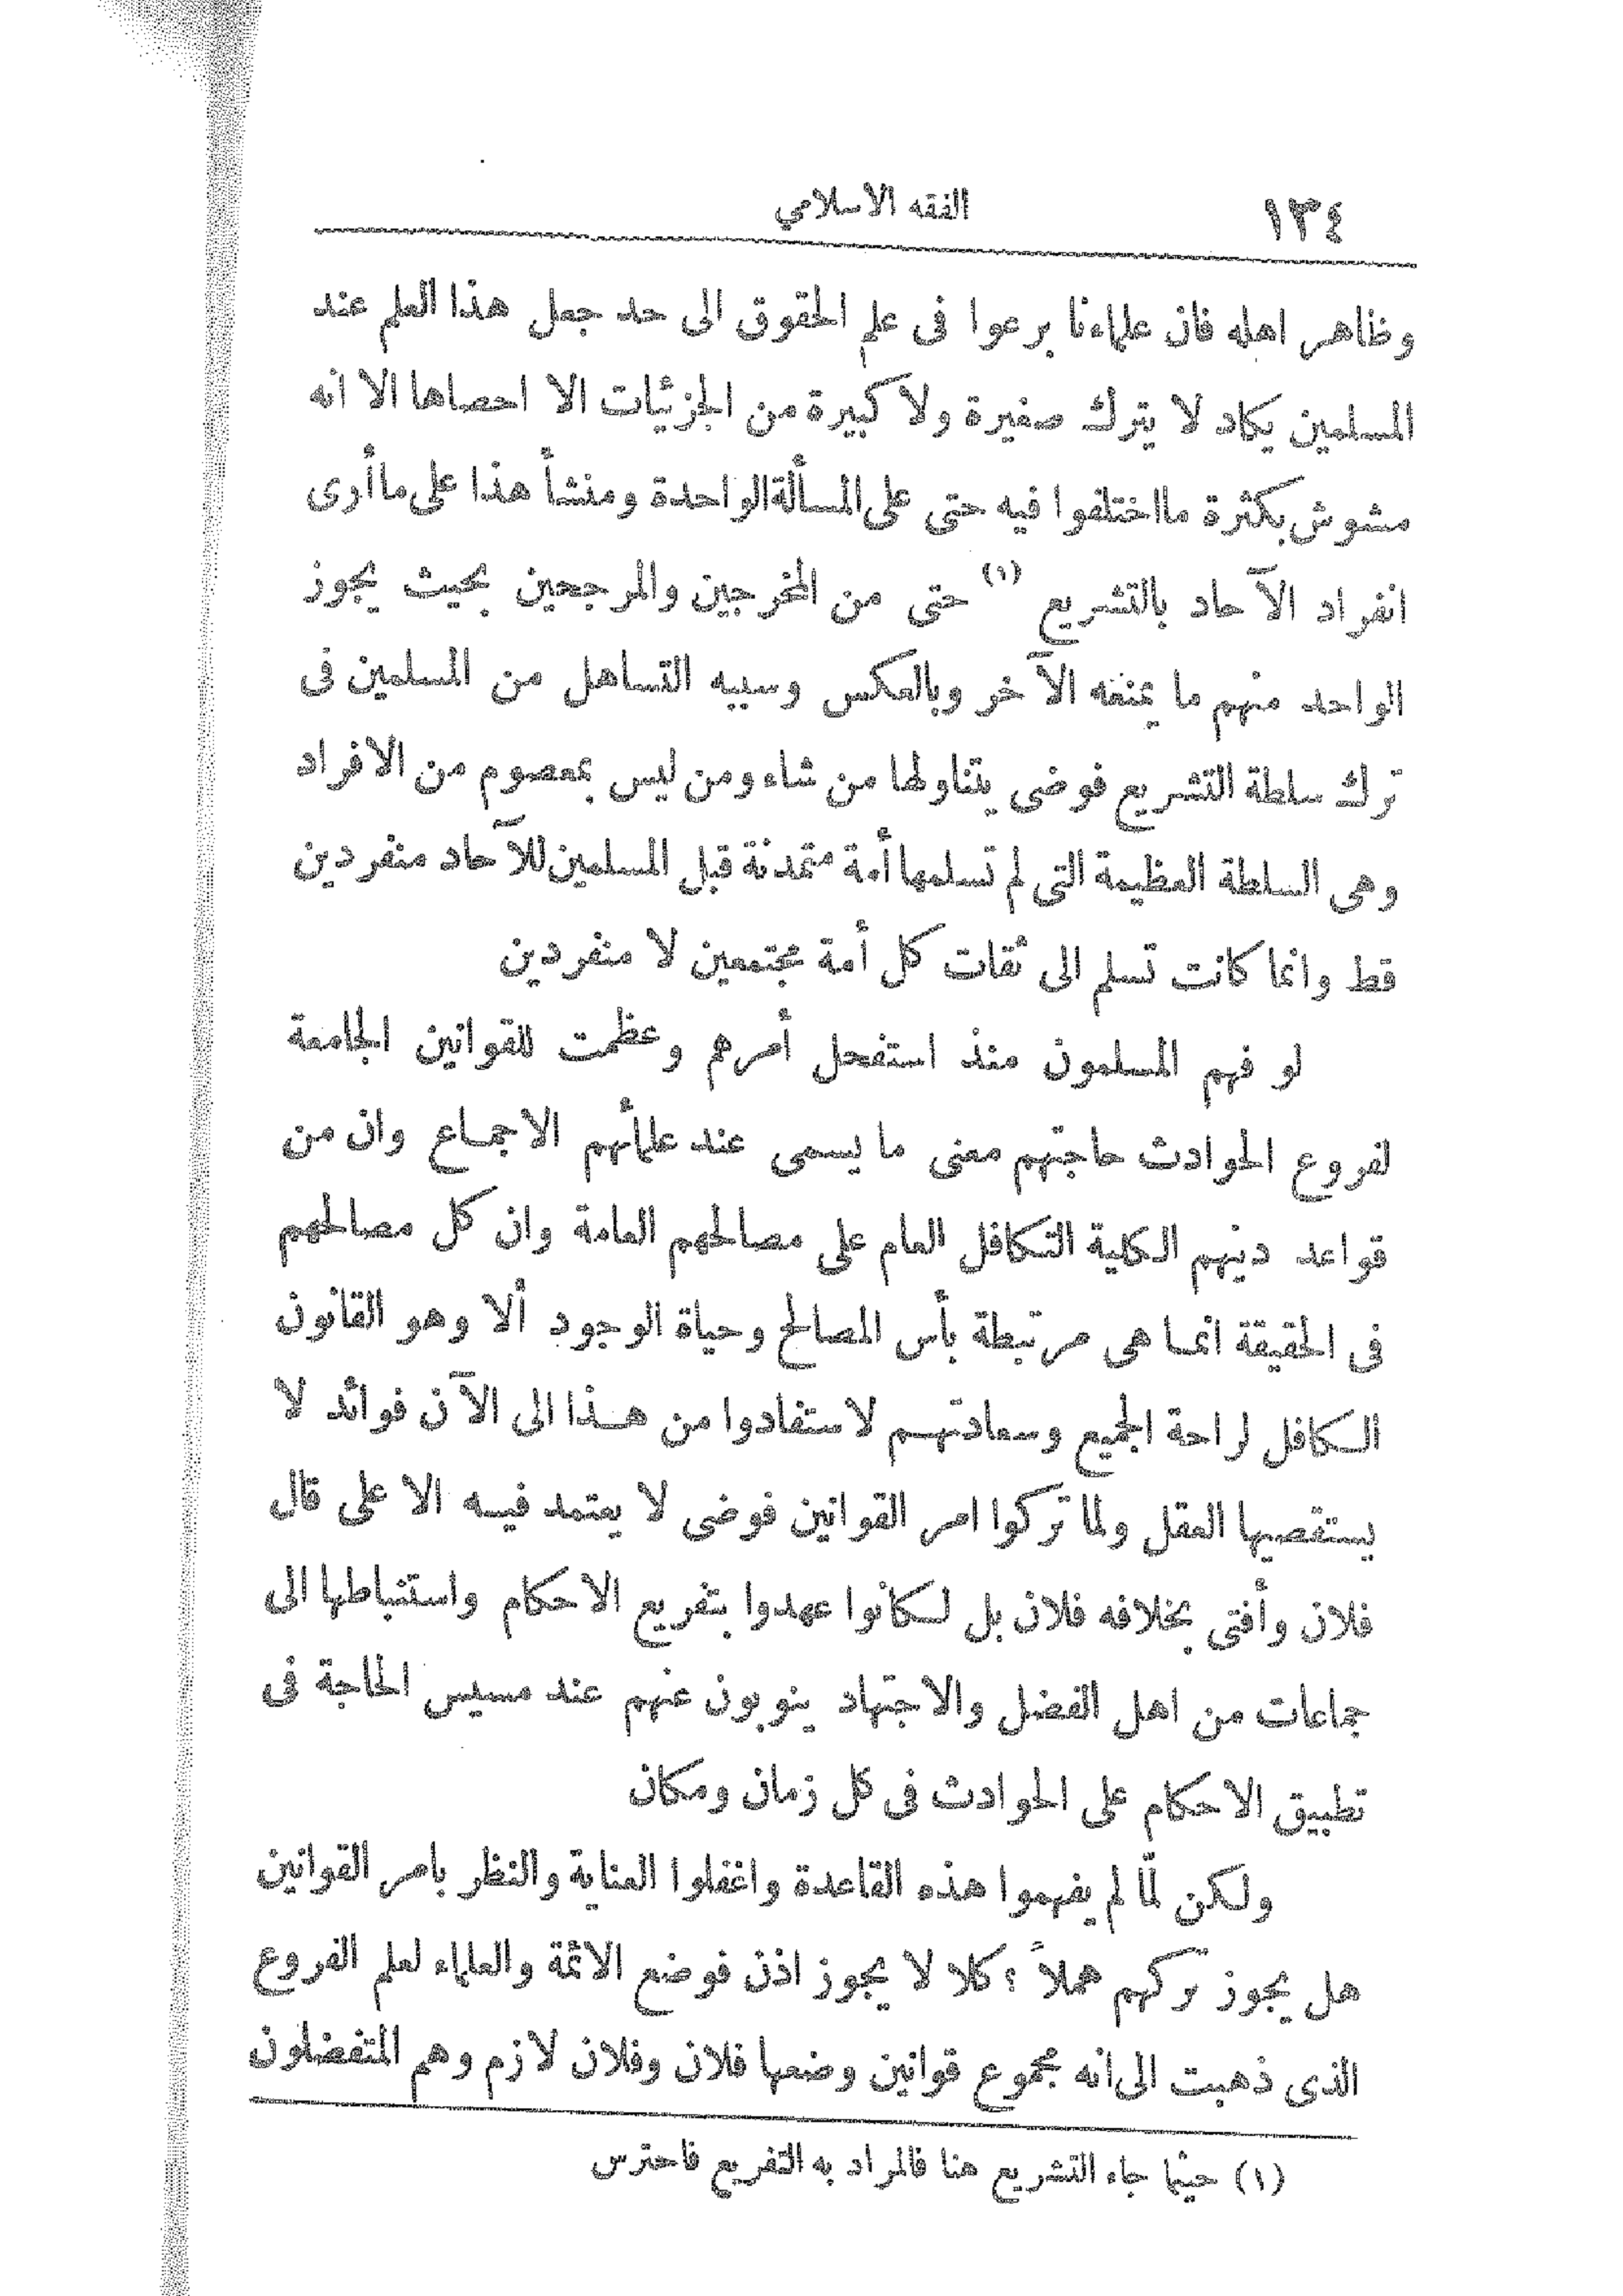 ١٣٤ الفقه الاسلامي
وظاهر اهله فان علماءنا برعوا فى علم الحقوق الى حد جعل هذا العلم عند
المسلمين يكاد لا يترك صغيرة ولا كبيرة من الجزئيات الا احصاها الا انه
مشوش بكثرة مااختلفوا فيه حتى على المسألة الواحدة ومنشأ هذا على ما أرى
انفراد الآحاد بالتشريع (١) حتى من المخرجين والمرجحين بحيث يجوز
الواحد منهم ما يمنعه الآخر وبالعكس وسببه التساهل من المسلمين فى
ترك سلطة التشريع فوضى يتناولها من شاء ومن ليس بمعصوم من الافراد
وهى السلطة العظيمة التى لم تسلمها أمة متمدنة قبل المسلمين للآحاد منفردين
قط وانما كانت تسلم الى ثقات كل أمة مجتمعين لا منفردين
لو فهم المسلمون منذ استفحل أمرهم وعظمت للقوانين الجامعة
لفروع الحوادث حاجتهم معنى ما يسمى عند علمائهم الاجماع وان من
قواعد دينهم الكلية التكافل العام على مصالحهم العامة وان كل مصالحهم
فى الحقيقة انما هى مرتبطة بأس المصالح وحياة الوجود ألا وهو القانون
الكافل لراحة الجميع وسعادتهم لاستفادوا من هذا الى الآن فوائد لا
يستقصيها العقل ولما تركوا امر القوانين فوضى لا يعتمد فيه الا على قال
فلان وأفتى بخلافه فلان بل لكانوا عهدوا بتفريع الاحكام واستنباطها الى
جماعات من اهل الفضل والاجتهاد ينوبون عنهم عند مسيس الحاجة فى
تطبيق الاحكام على الحوادث فى كل زمان ومكان
ولكن لمّا لم يفهموا هذه القاعدة واغفلوا العناية والنظر بامر القوانين
هل يجوز تركهم هملاً ؟ كلا لا يجوز اذن فوضع الائمة والعلماء لعلم الفروع
الذى ذهبت الى انه مجموع قوانين وضعها فلان وفلان لازم وهم المتفضلون
(١) حيثما جاء التشريع هنا فالمراد به التفريع فاحترس